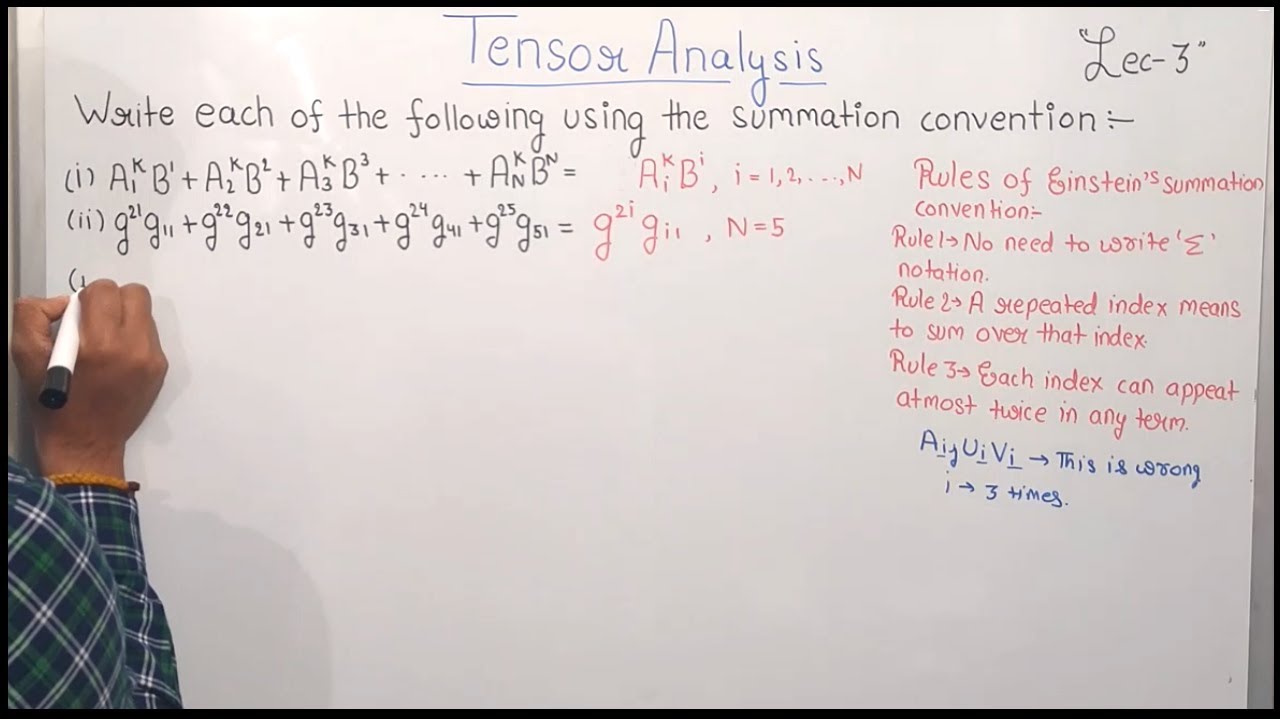 Tensor Analysis
"Lec-3"
Write each of the following using the summation convention:-
(i) A₁ᴷB¹ + A₂ᴷB² + A₃ᴷB³ + · ··· + A_NᴷBᴺ = AᵢᴷBⁱ, i = 1, 2, ..., N
(ii) g²¹g₁₁ + g²²g₂₁ + g²³g₃₁ + g²⁴g₄₁ + g²⁵g₅₁ = g²ⁱgᵢ₁ , N = 5
(i
Rules of Einstein's summation
convention:-
Rule 1→ No need to write 'Σ'
notation.
Rule 2→ A repeated index means
to sum over that index.
Rule 3→ Each index can appeat
atmost twice in any term.
AᵢⱼUᵢVᵢ → This is wrong
i → 3 times.